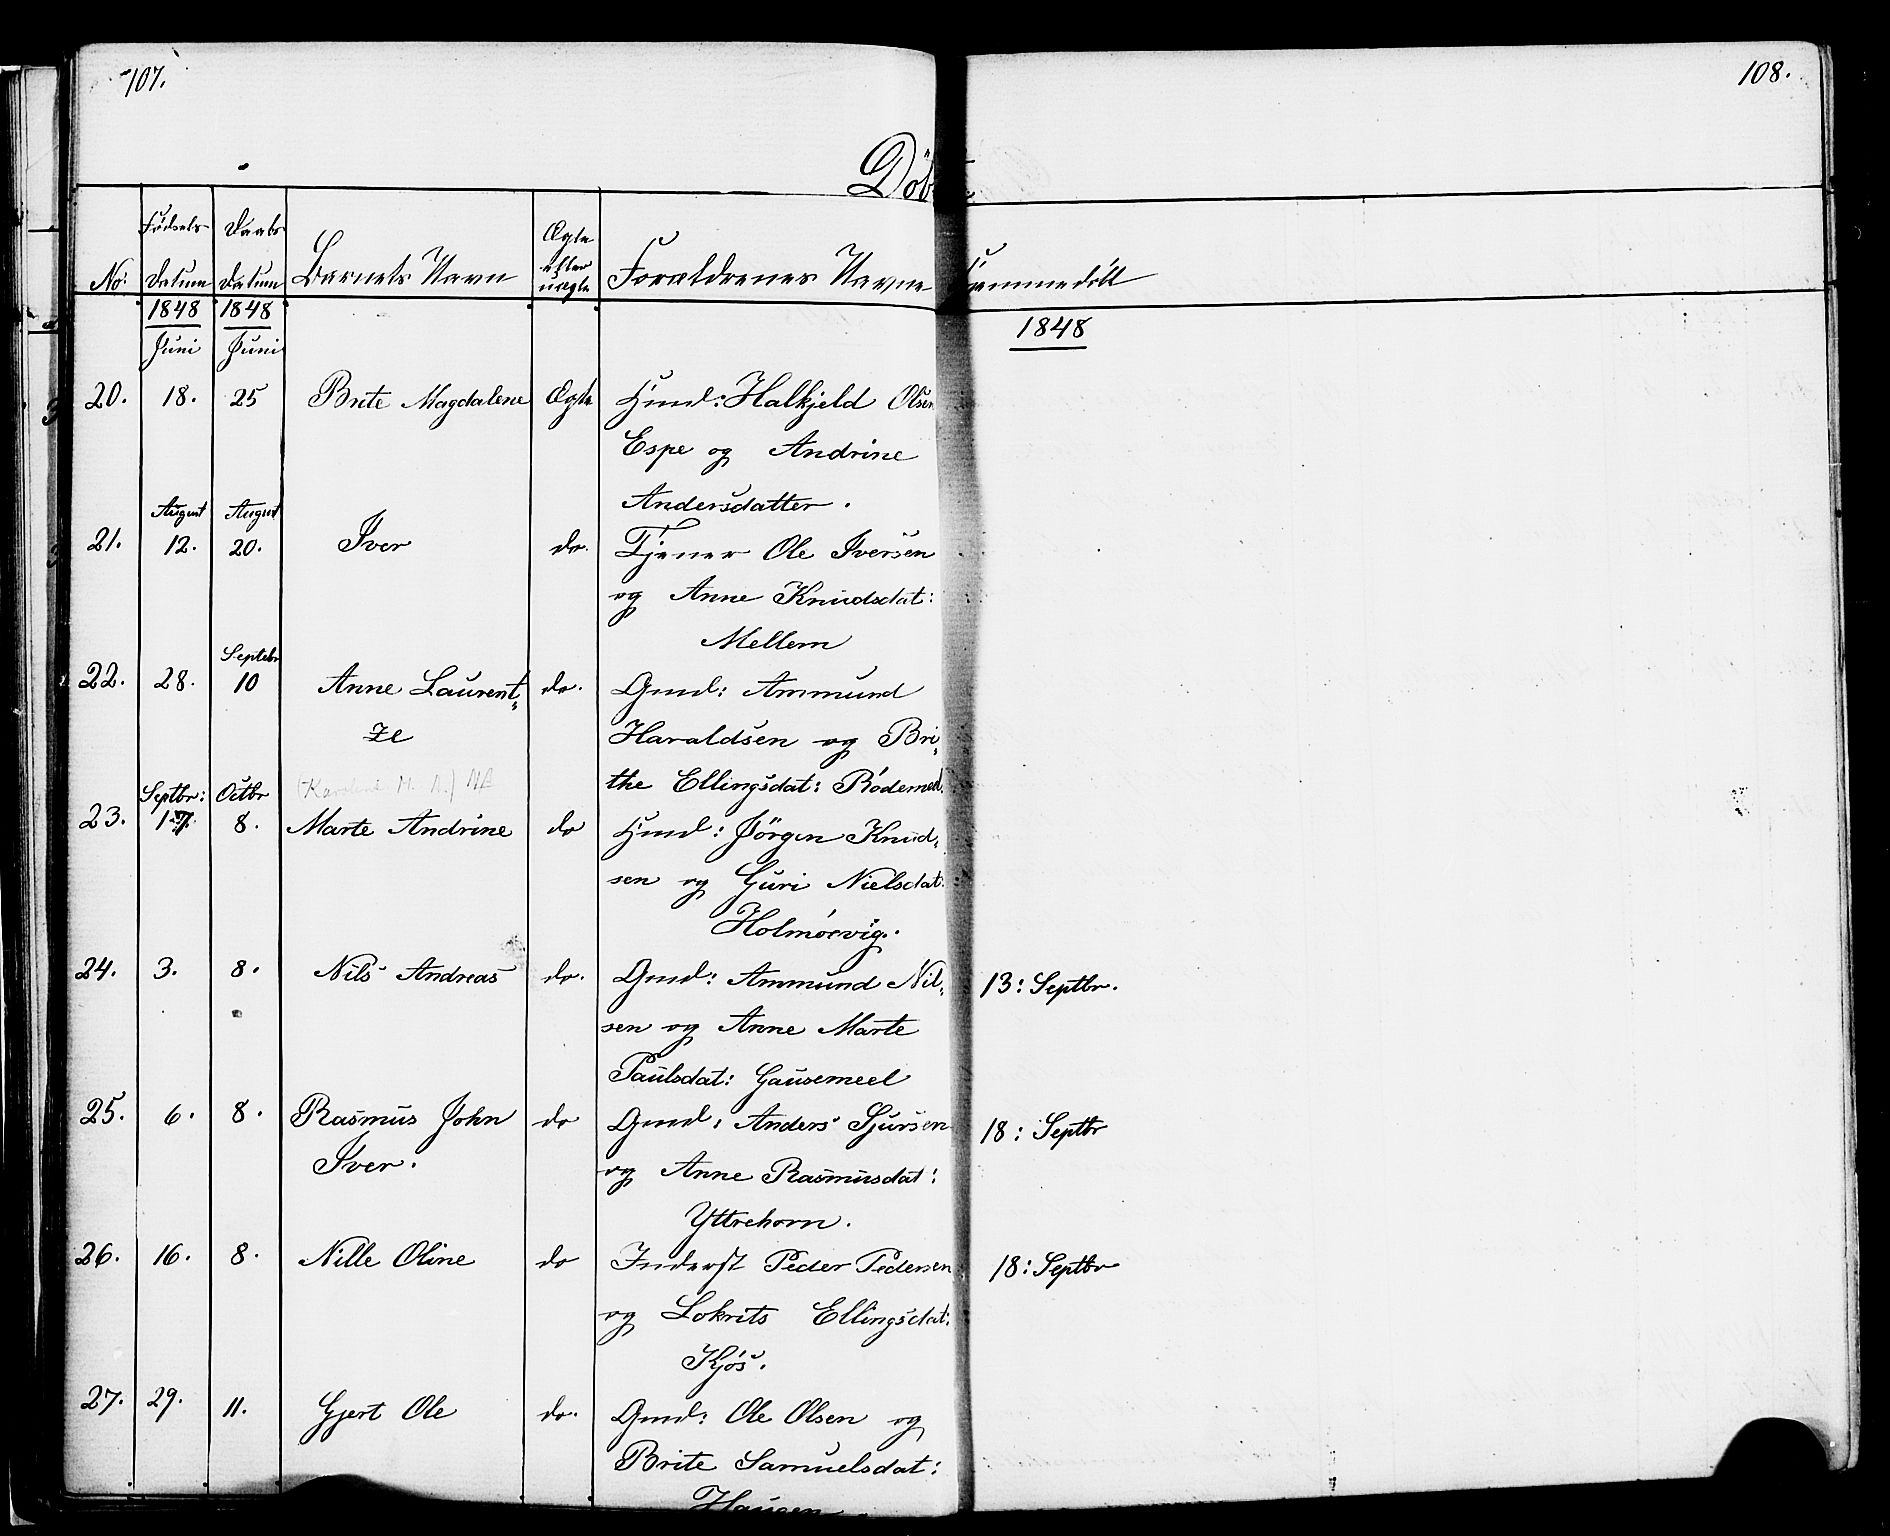 107.
108.
Döbte
No:
Fødsels
Datum
Daabs
Datum
Barnets Navn
Ægte
eller
uægte
Forældrenes Navne
Hjemmedöbt
1848
1848
1848
Juni
Juni
20. 18. 25 Brite Magdalene Ægte Huusm: Halkjeld Olsen
Espe og Andrine
Andersdatter.
August August
21. 12. 20. Iver do. Tjener Ole Iversen
og Anne Knudsdat:
Mellem
Septebr
22. 28. 10 Anne Laurent- do. Gmd: Ammund
ze Haraldsen og Bri-
the Ellingsdat: Rödemeel
Septbr: Octbr
23. 17. 8. Marte Andrine do Huusm: Jörgen Knud-
sen og Guri Nielsdat:
Holmörvig.
24. 3. 8. Nils Andreas do. Gmd: Ammund Nil- 13: Septbr.
sen og Anne Marte
Paulsdat: Gausemeel
25. 6. 8. Rasmus John do Gmd: Anders Sjursen 18: Septbr
Iver. og Anne Rasmusdat:
Yttrehorn.
26. 16. 8. Nille Oline do Inderst Peder Pedersen 18: Septbr
og Lokrits Ellingsdat:
Kjös.
27. 29. 11. Gjert Ole do. Gmd: Ole Olsen og
Brite Samuelsdat:
Haugen